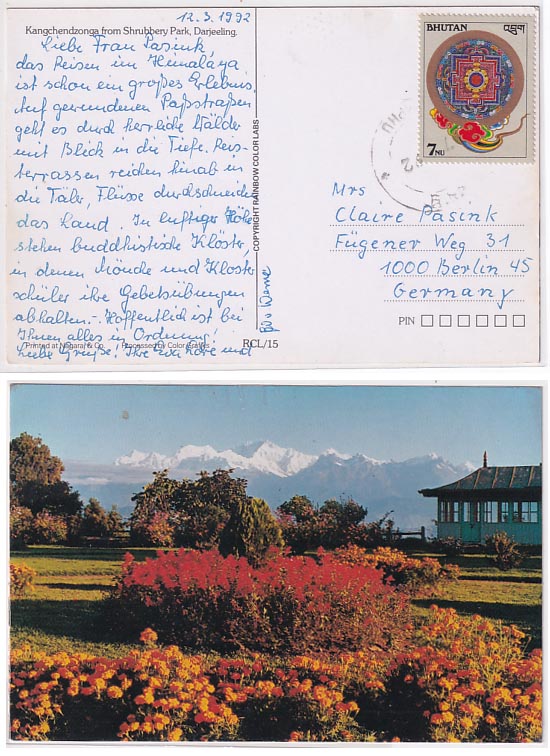 12.3.1992
Kangchendzonga from Shrubbery Park, Darjeeling.
Liebe Frau Pasink,
das Reisen im Himalaya
ist schon ein großes Erlebnis.
Auf gewundenen Paßstraßen
geht es durch herrliche Wälder
mit Blick in die Tiefe. Reis-
terrassen reichen hinab in
die Täler, Flüsse durchschneiden
das Land. In luftiger Höhe
stehen buddhistische Klöster,
in denen Mönche und Kloster
schüler ihre Gebetsübungen
abhalten. - Hoffentlich ist bei
Ihnen alles in Ordnung!
Liebe Grüße! Ihre und
Printed at Niagaraj & Co. Processed by Color Crafts
COPYRIGHT RAINBOW COLOR LABS
RCL/15
BHUTAN
འབྲུག
7NU
Mrs
Claire Pasink
Fügener Weg 31
1000 Berlin 45
Germany
PIN